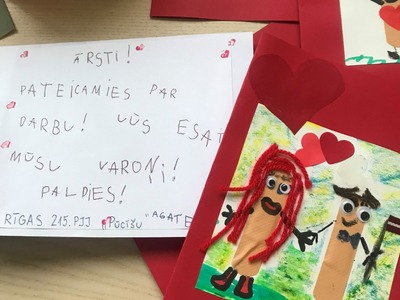 ĀRSTI!
PATEICAMIES PAR
DARBU! JŪS ESAT
MŪSU VAROŅI!
PALDIES!
RĪGAS 215.PII "Pūcīšu" AGATE